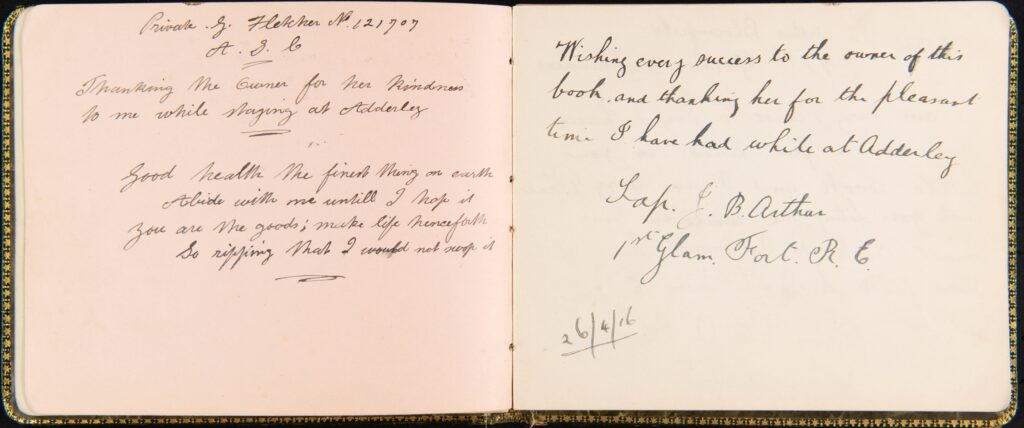 Private. G. Fletcher No. 121707
A. S. C
Thanking the Owner for her kindness
to me while staying at Adderley
Good health the finest thing on earth
Abide with me untill I hop it
You are the goods; make life henceforth
So ripping that I would not swop it
Wishing every success to the owner of this
book, and thanking her for the pleasant
time I have had while at Adderley
Sap. J. B. Arthur
1st Glam. Fort. R. E.
26/4/16